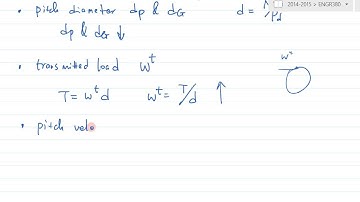 2014-2015 > ENGR380
• pitch diameter dp & dG d = N/Pd
dp & dG ↓
• transmitted load W^t
W^t
T = W^t d W^t = T/d ↑
• pitch velo